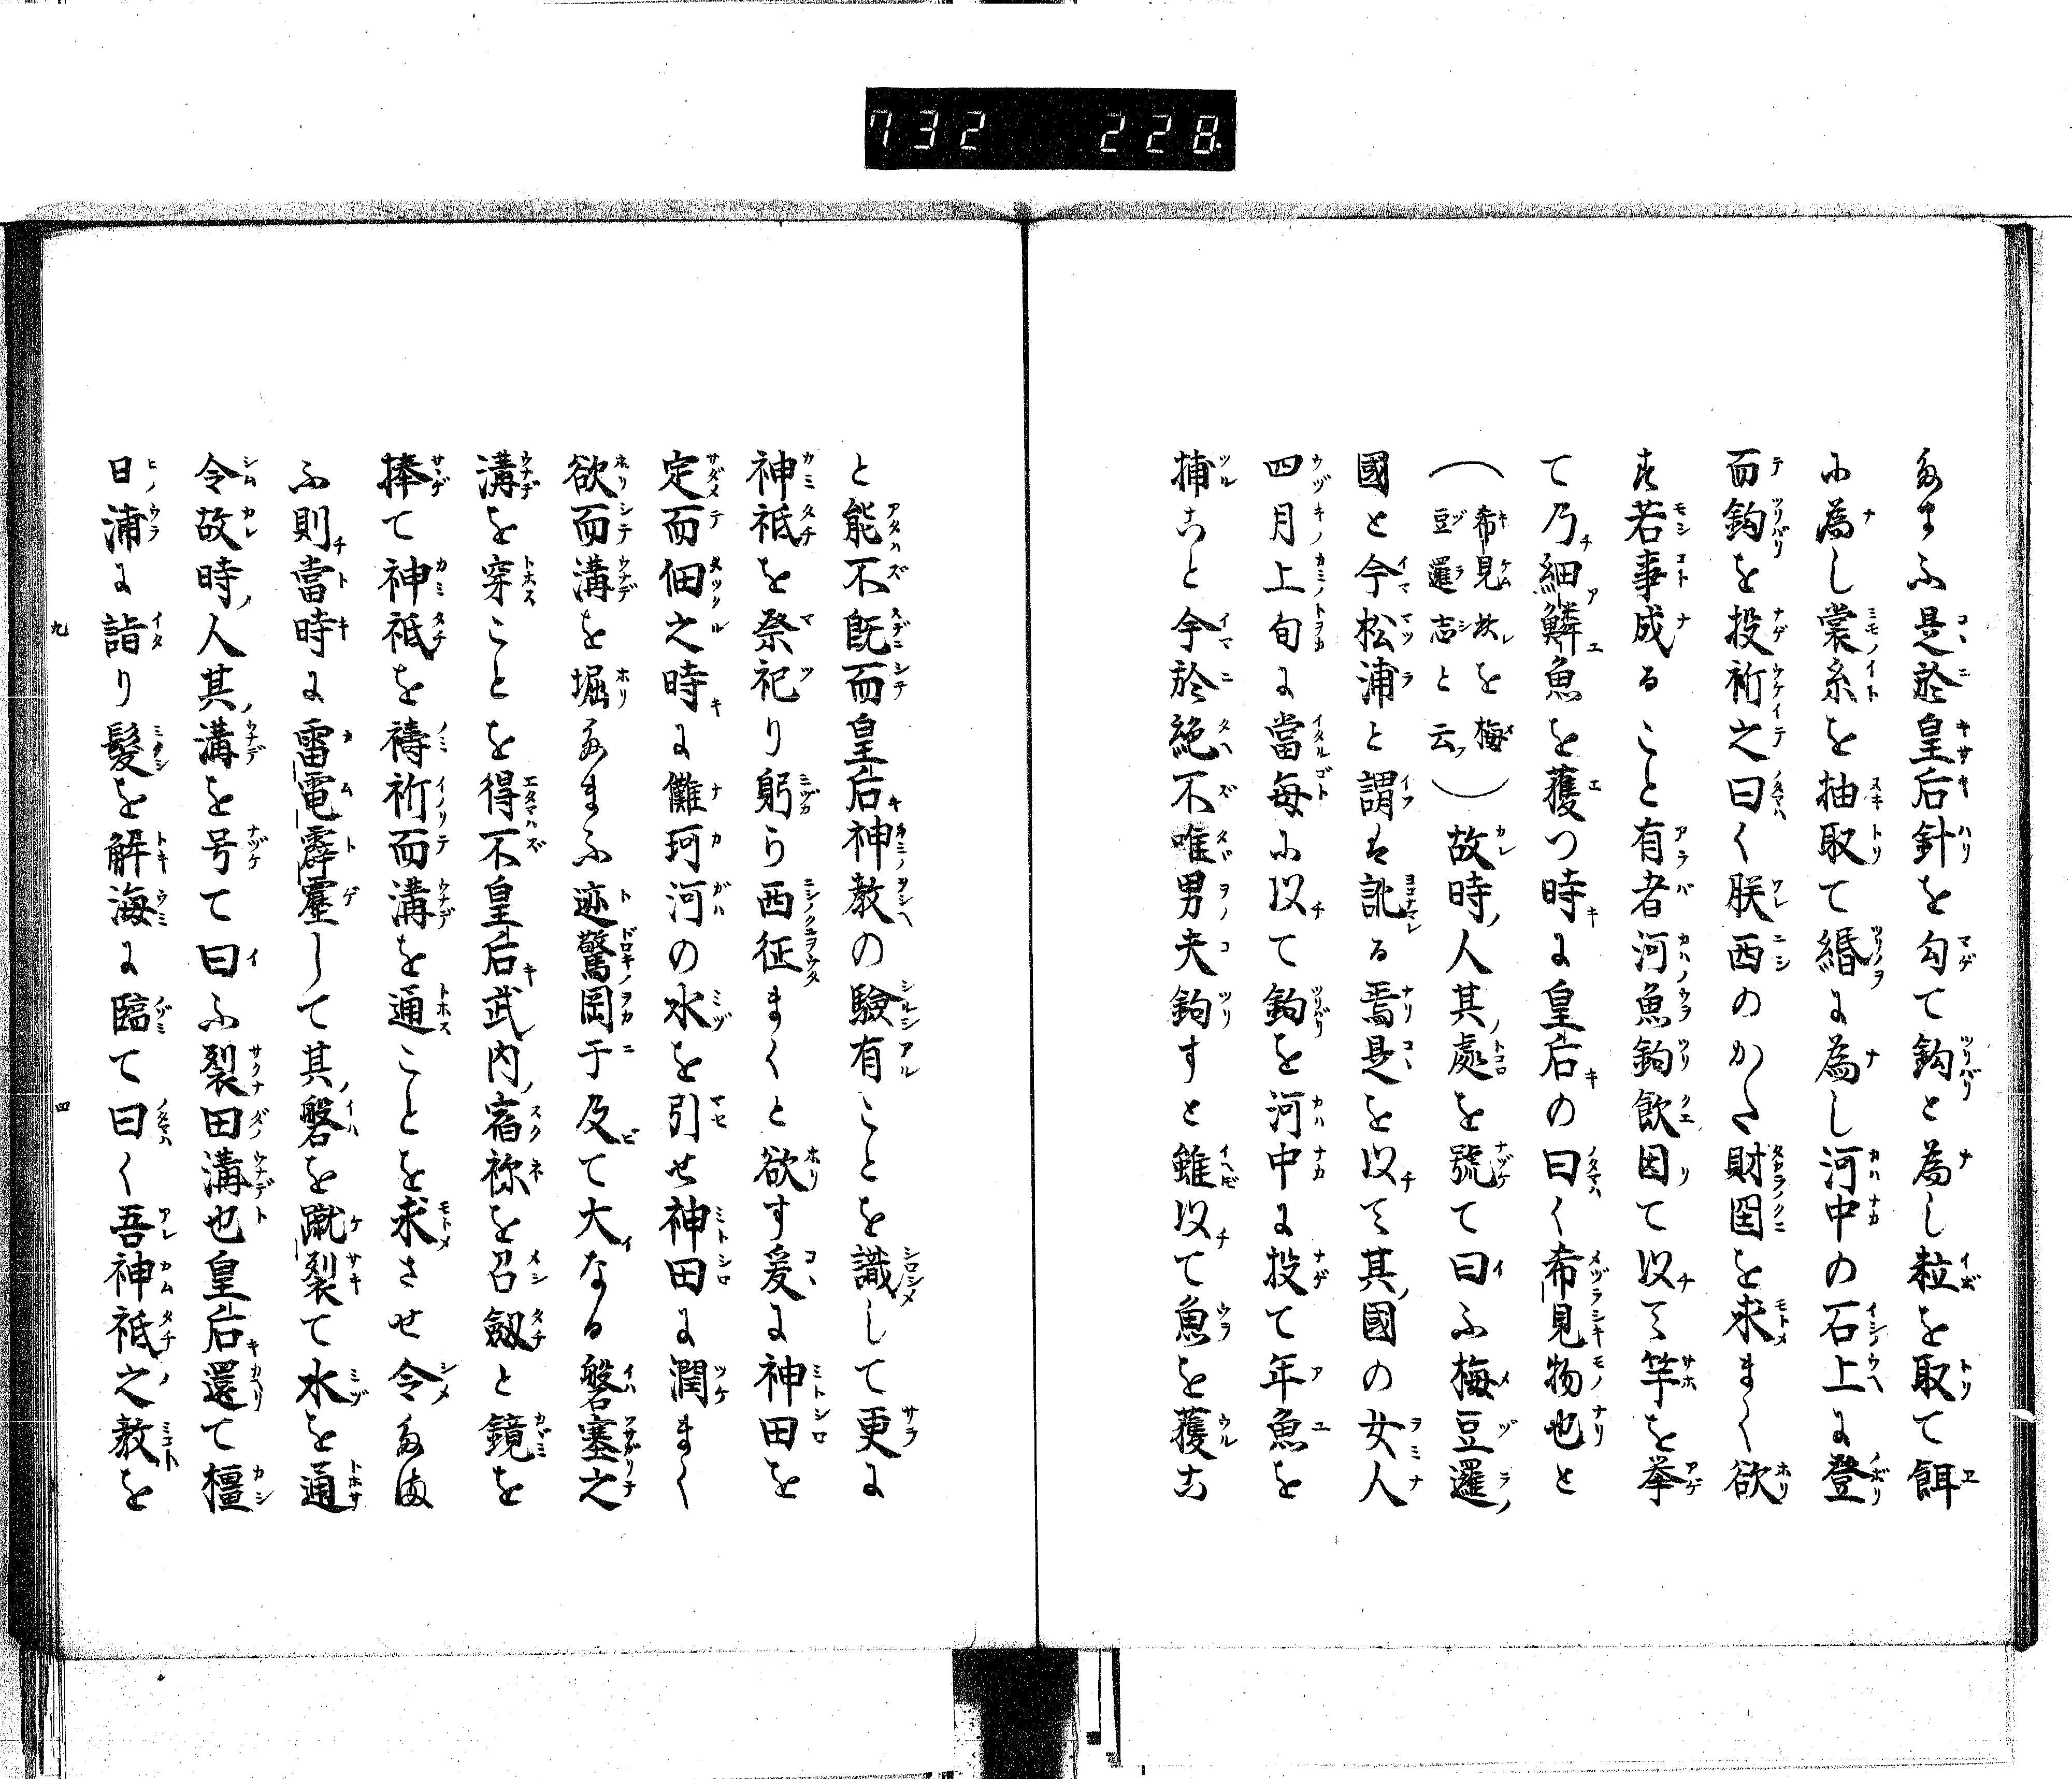 732 228
たまふ是於皇后針を勾て鈎と為し粒を取て餌
に為し裳糸を抽取て緡に為し河中の石上に登
而鈎を投祈之曰く朕西のかた財国を求まく欲
す若事成ること有者河魚鈎飲因て以て竿を挙
て乃細鱗魚を獲つ時に皇后の曰く希見物也と
(希見此を梅
豆邏志と云)故時人其處を號て曰ふ梅豆邏
國と今松浦と謂は訛る焉是を以て其國の女人
四月上旬に當毎に以て鈎を河中に投て年魚を
捕こと今於絶不唯男夫鈎すと雖以て魚を獲こ
と能不既而皇后神教の驗有ことを識して更に
神祗を祭祀り躬ら西征まくと欲す爰に神田を
定而佃之時に儺珂河の水を引せ神田に潤まく
欲而溝を堀たまふ迹驚岡于及て大なる磐塞之
溝を穿ことを得不皇后武内宿祢を召劔と鏡を
捧て神祗を祷祈而溝を通ことを求させ令たま
ふ則當時に雷電霹靂して其磐を蹴裂て水を通
令故時人其溝を号て曰ふ裂田溝也皇后還て橿
日浦に詣り髮を解海に臨て曰く吾神祗之教を
九 四